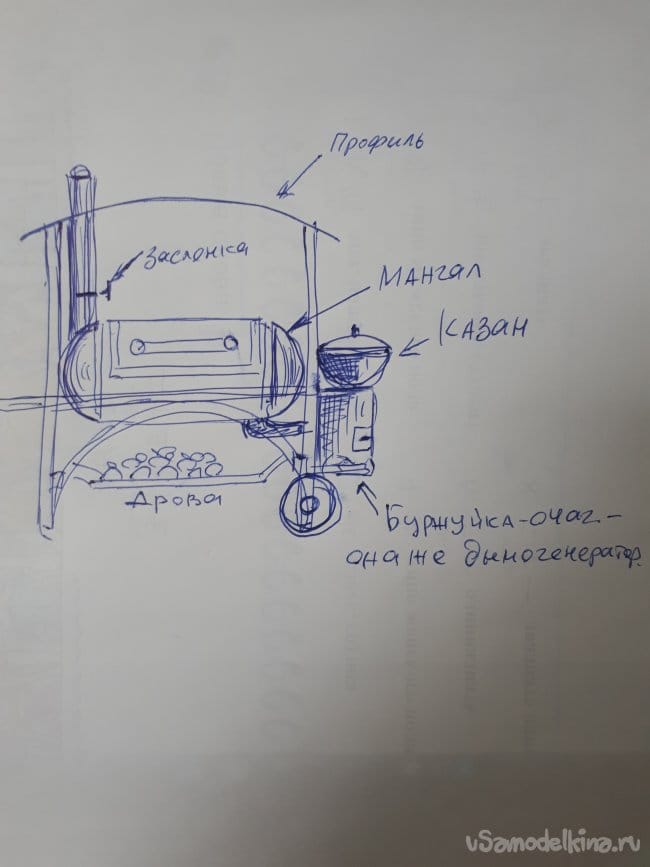 Профиль
Заслонка
Мангал
Казан
Дрова
Буржуйка-очаг-
она же дымогенератор.
vSamodelkina.ru